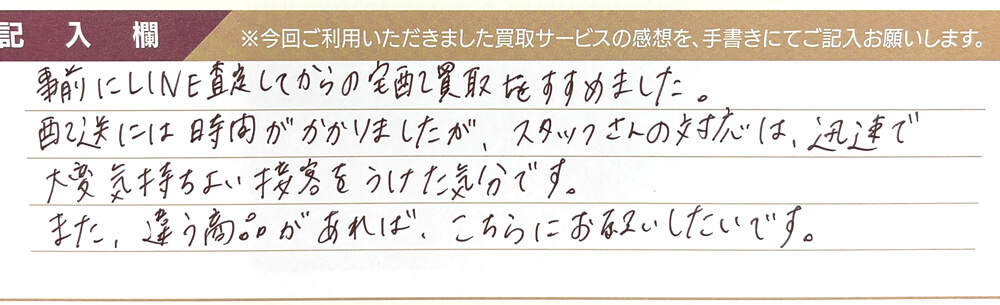 記入欄 ※今回ご利用いただきました買取サービスの感想を、手書きにてご記入お願いします。
事前にLINE査定してからの宅配買取をすすめました。
配送には時間がかかりましたが、スタッフさんの対応は、迅速で
大変気持ちよい接客をうけた気分です。
また、違う商品があれば、こちらにお願いしたいです。